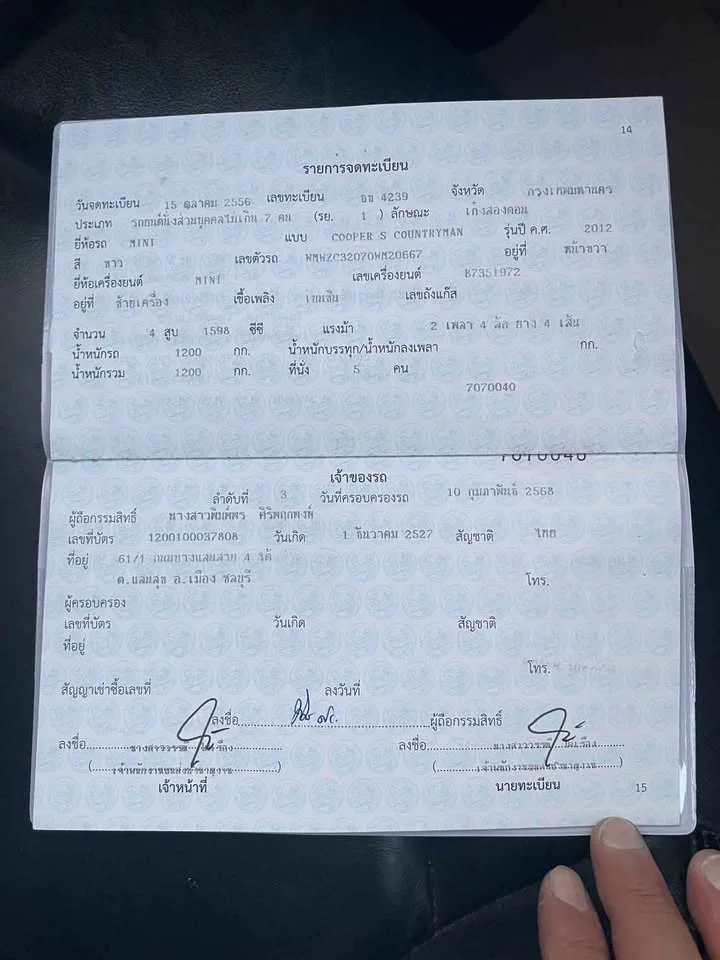 14
รายการจดทะเบียน
วันจดทะเบียน 15 ตุลาคม 2556 เลขทะเบียน 4239 จังหวัด กรุงเทพมหานคร
ประเภท รถยนต์นั่งส่วนบุคคลไม่เกิน 7 คน (รย. 1 ) ลักษณะ เก๋งสองตอน
ยี่ห้อรถ MINI แบบ COOPER S COUNTRYMAN รุ่นปี ค.ศ. 2012
สี ขาว เลขตัวรถ WMWZC32070WM20667 อยู่ที่ หน้าขวา
ยี่ห้อเครื่องยนต์ MINI เลขเครื่องยนต์ B7351972
อยู่ที่ ซ้ายเครื่อง เชื้อเพลิง เบนซิน เลขถังแก๊ส
จำนวน 4 สูบ 1598 ซีซี แรงม้า 2 เพลา 4 ล้อ ยาง 4 เส้น
น้ำหนักรถ 1200 กก. น้ำหนักบรรทุก/น้ำหนักลงเพลา กก.
น้ำหนักรวม 1200 กก. ที่นั่ง 5 คน
7070040
7070040
เจ้าของรถ
ลำดับที่ 3 วันที่ครอบครองรถ 10 กุมภาพันธ์ 2568
ผู้ถือกรรมสิทธิ์ นางสาวพิมพ์พร ศิริพฤกพงษ์
เลขที่บัตร 1200100037808 วันเกิด 1 ธันวาคม 2527 สัญชาติ ไทย
ที่อยู่ 61/1 ถนนบางแสนสาย 4 ใต้
ต.แสนสุข อ.เมือง ชลบุรี โทร.
ผู้ครอบครอง
เลขที่บัตร วันเกิด สัญชาติ
ที่อยู่
โทร.
สัญญาเช่าซื้อเลขที่ ลงวันที่
ลงชื่อ ผู้ถือกรรมสิทธิ์
ลงชื่อ ลงชื่อ
เจ้าหน้าที่ นายทะเบียน
15